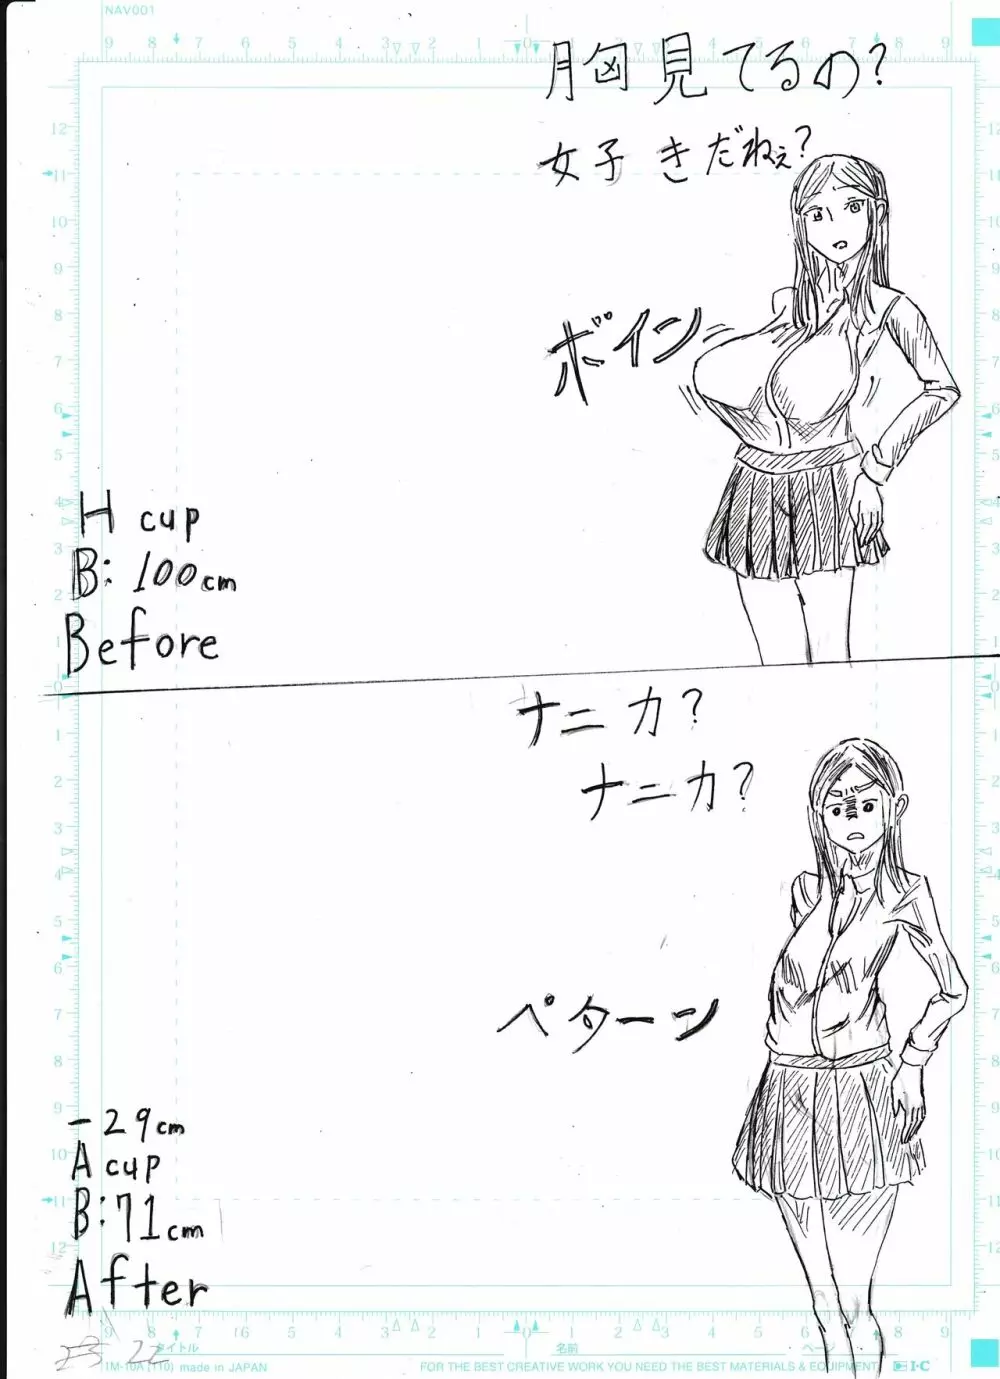 NAV001
胸見てるの?
女子きだねぇ?
ボイン
H cup
B: 100cm
Before
ナニカ?
ナニカ?
ペターン
-29cm
A cup
B: 71cm
After
タイトル
名前
ページ
1M-10A (110) made in JAPAN
FOR THE BEST CREATIVE WORK YOU NEED THE BEST MATERIALS & EQUIPMENT
I·C